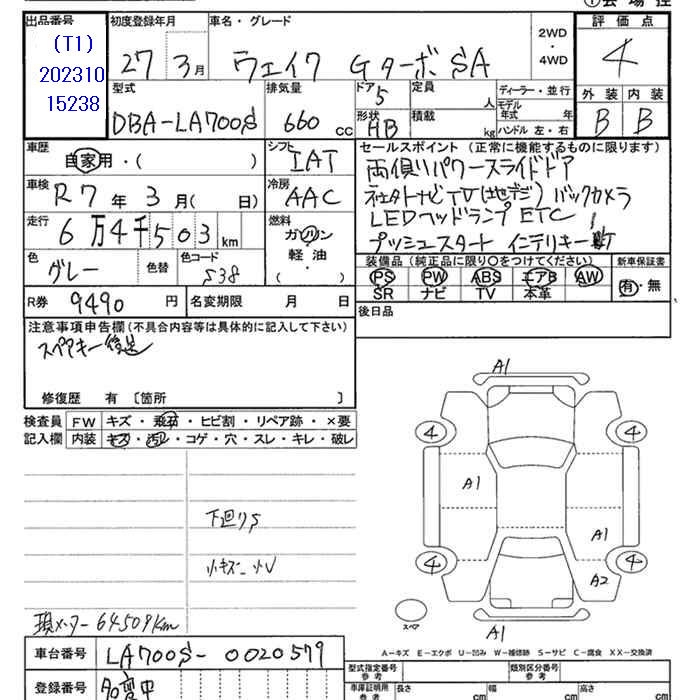 ①会場控
出品番号
(T1)
202310
15238
初度登録年月
27年3月
車名・グレード
ウェイク GターボSA
2WD
・
4WD
評価点
4
外装 内装
B B
型式
DBA-LA700S
排気量
660 CC
ドア
5
形状
HB
定員
人
積載
kg
ディーラー・並行
モデル年式 年
ハンドル 左・右
車歴
自家用・( )
シフト
IAT
車検
R7年3月( 日)
冷房
AAC
走行
6万4千503km
燃料
ガソリン
軽油
( )
色
グレー
色替
色コード
S38
R券 9490 円
名変期限 月 日
セールスポイント(正常に機能するものに限ります)
両側パワースライドドア
ナビTV(地デジ) バックカメラ
LEDヘッドランプ ETC
プッシュスタート インテリキー
装備品(純正品に限り○をつけてください)
PS PW ABS エアB AW
SR ナビ TV 本革
新車保証書
有・無
後日品
注意事項申告欄(不具合内容等は具体的に記入して下さい)
スペアキー後送
修復歴 有 〔箇所 〕
検査員記入欄
FW キズ・飛石・ヒビ割・リペア跡・×要
内装 キズ・汚レ・コゲ・穴・スレ・キレ・破レ
下廻りS
小キズ 小U
現メーター 64509km
A1
4
4
A1
A1
4
4
A2
スペア
A1
A-キズ E-エクボ U-凹み W-補修跡 S-サビ C-腐食 XX-交換済
車台番号 LA700S-0020579
登録番号 名変中
型式指定番号
参考
類別区分番号
参考
車庫証明用
参考
長さ cm
幅 cm
高さ cm